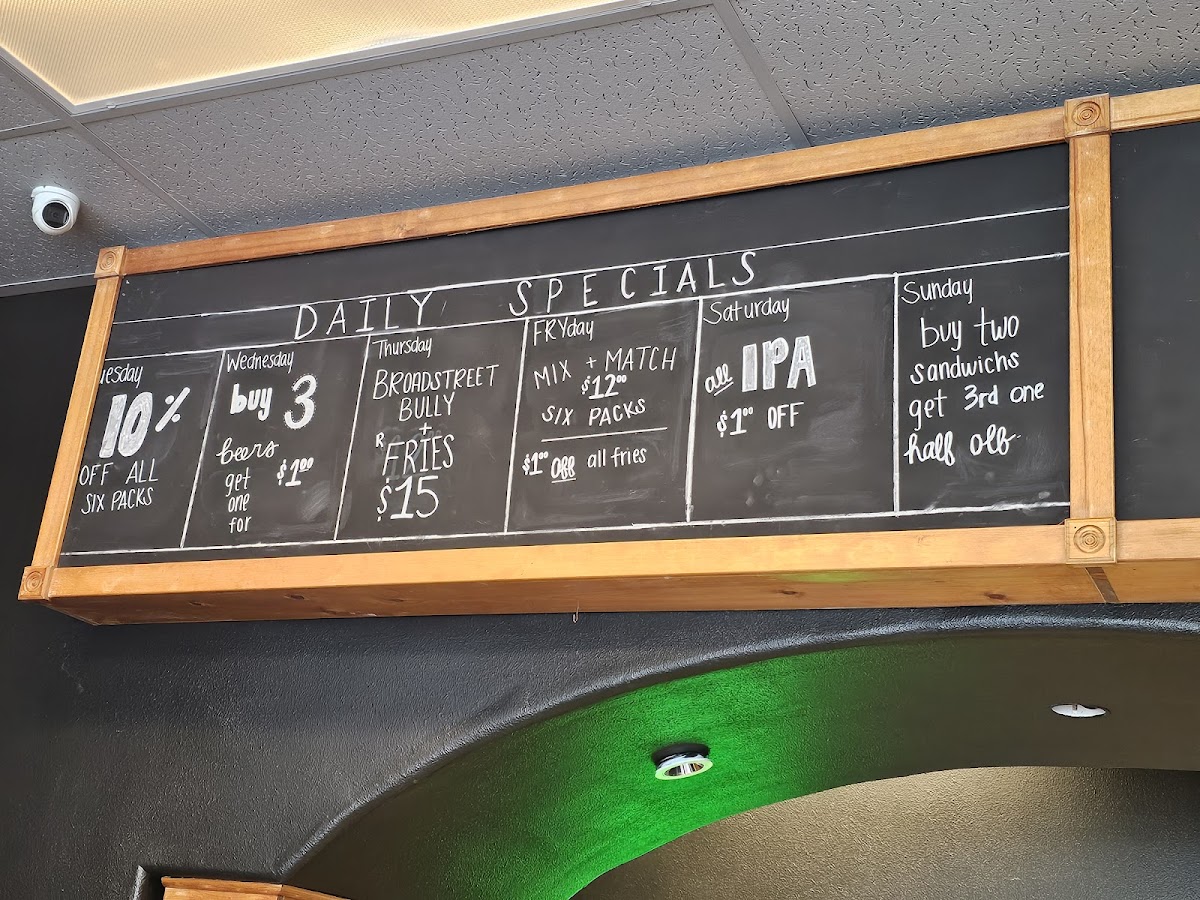 DAILY SPECIALS
uesday
10%
OFF ALL
SIX PACKS
Wednesday
buy 3
beers
get
one
for
$1.00
Thursday
BROADSTREET
BULLY
+
R FRIES
$15
FRYday
MIX + MATCH
$12.00
SIX PACKS
$1.00 OFF all fries
Saturday
all IPA
$1.00 OFF
Sunday
buy two
sandwichs
get 3rd one
half off